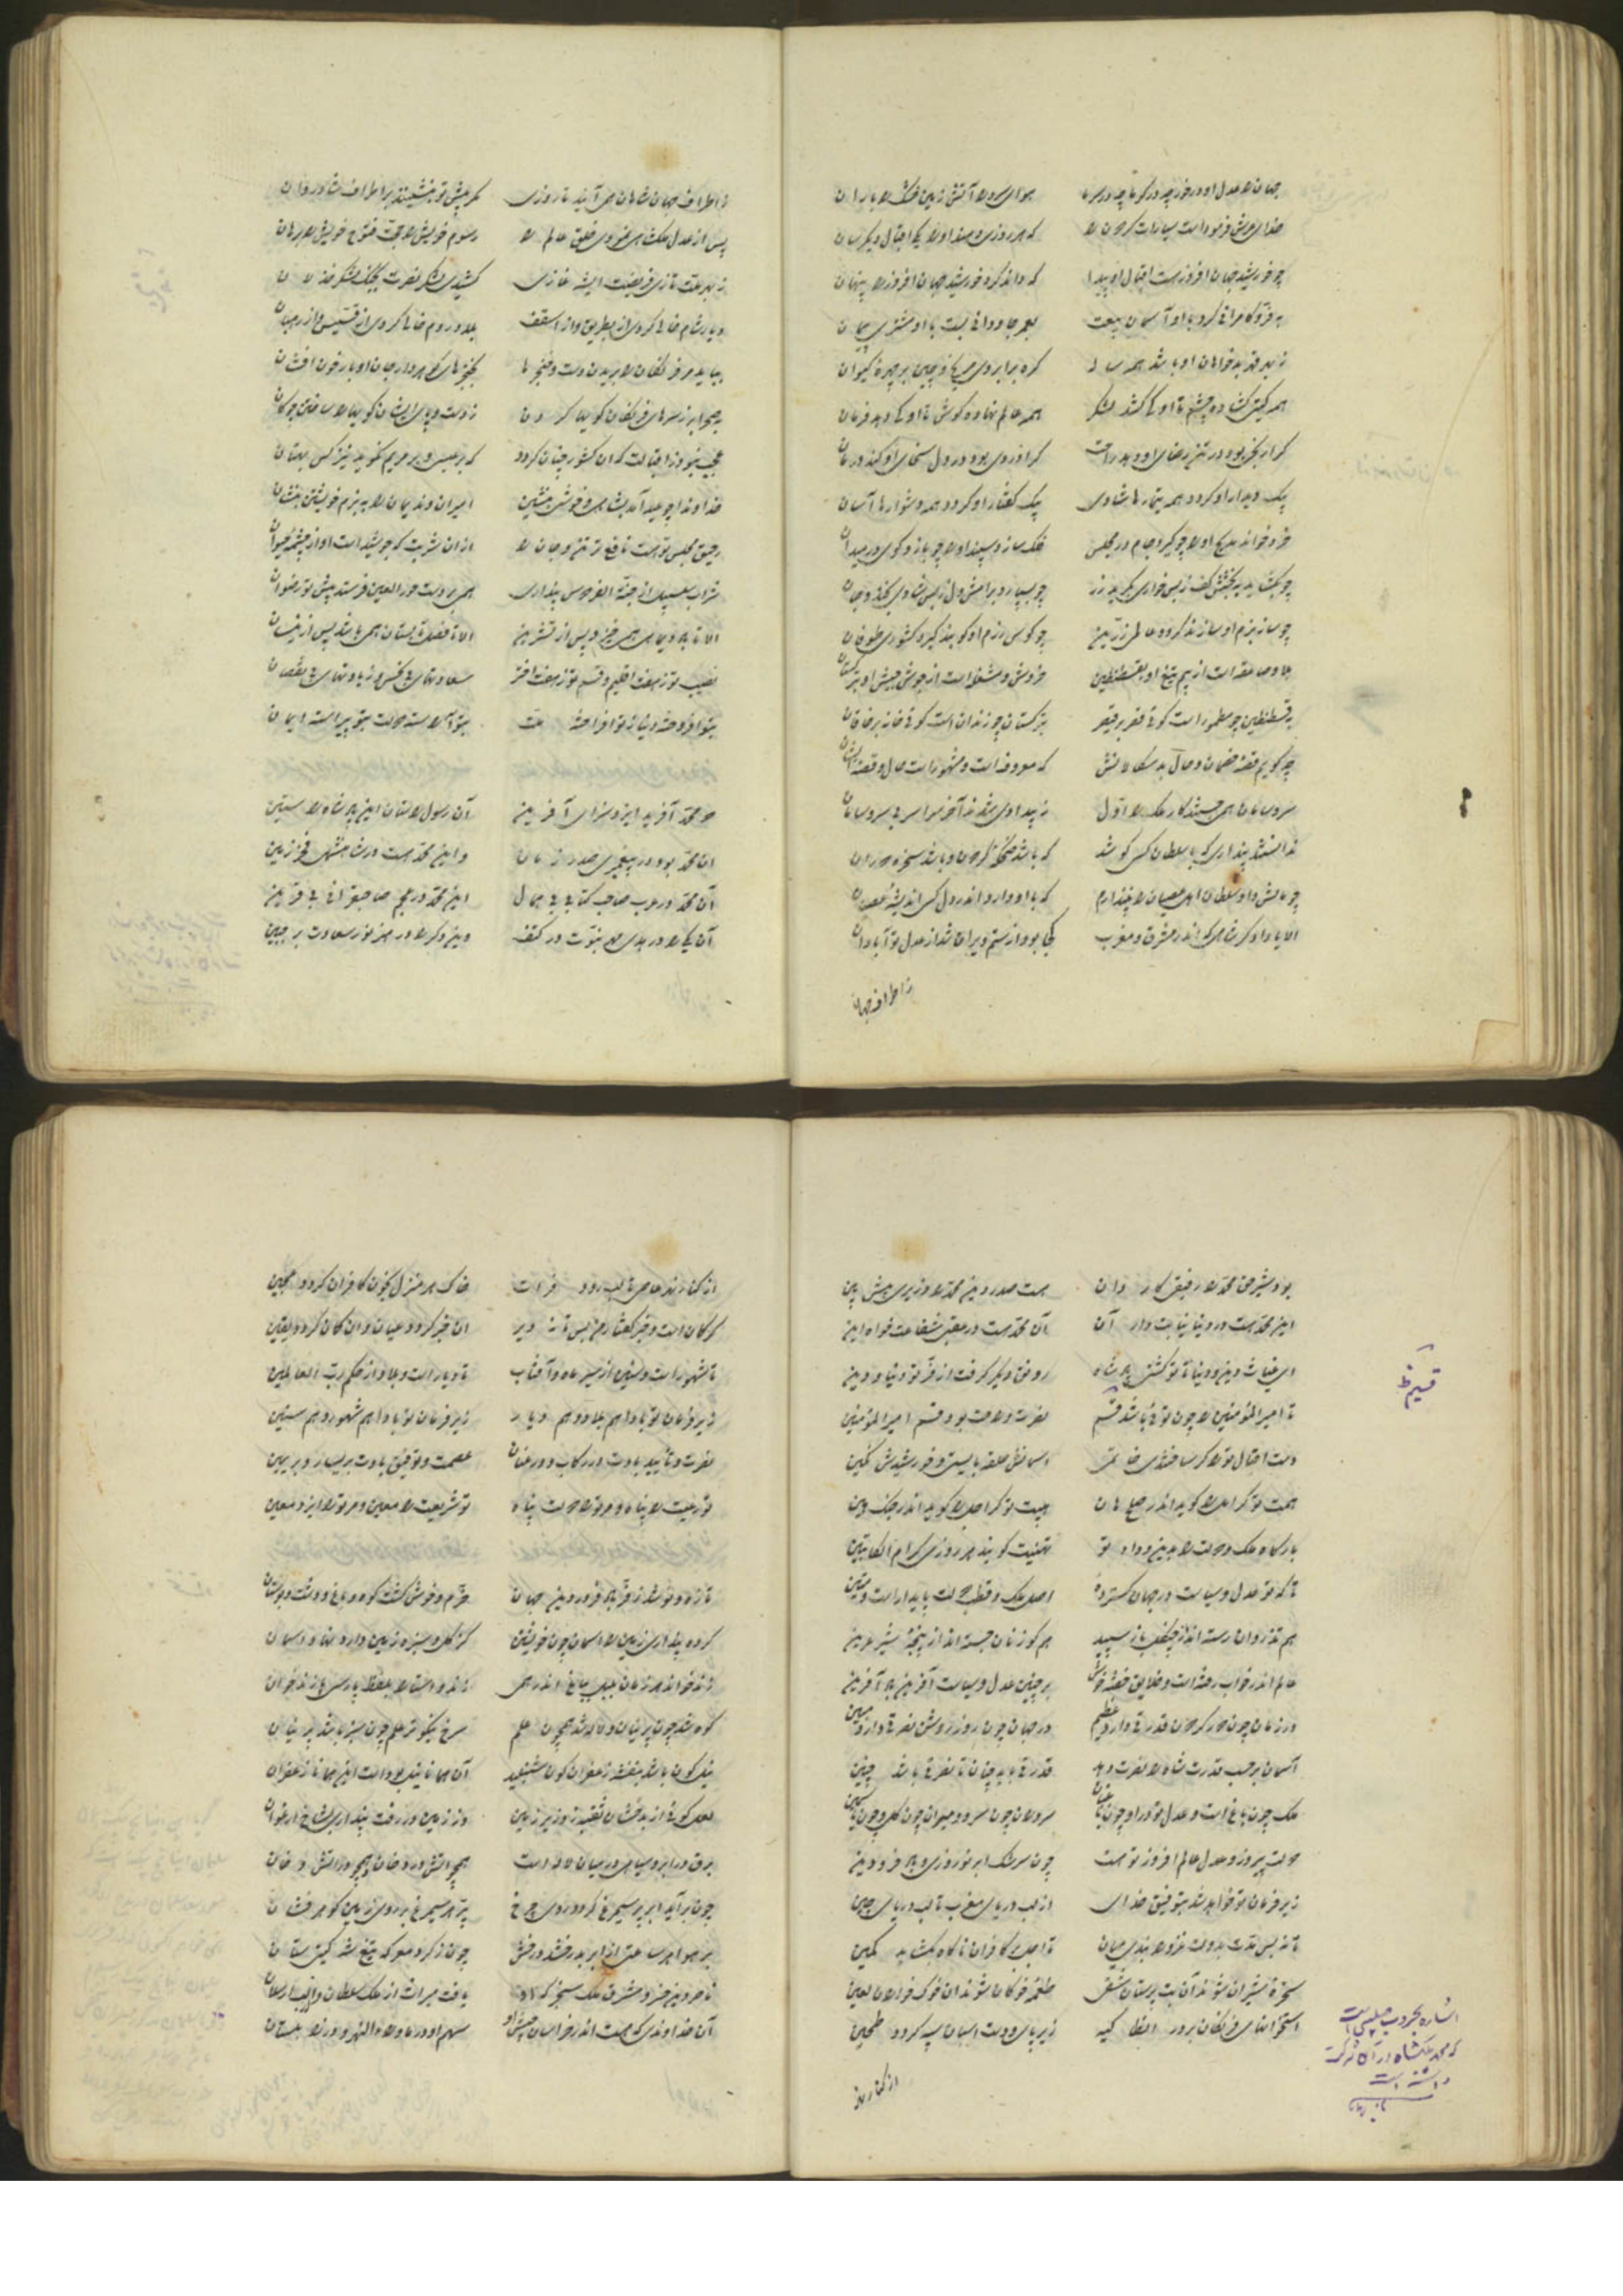 جهان را عدل او درخور چه در گرما چه در سرما هوای سرد را آتش زمین خشک را باران
خدای عرش فرمودست سیارات گردون را که هر روزی دهند او را یکی اقبال دیگرسان
چو خورشید جهان افروز هست اقبال او پیدا که داند کرد خورشید جهان افروز را پنهان
به فر و کامرانی کرد با او آسمان بیعت بعمر جاودانی بست با او مشتری پیمان
ز بهر قهر بدخواهان او باشد همه ساله گره بر ابروی مریخ و چین بر چهره کیوان
همه گیتی گشاده چشم تا او کی کشد لشکر همه عالم نهاده گوش تا او کی دهد فرمان
گر از رنجی بود در تن رضای او دهد راحت گر از دردی بود در دل سخای او کند درمان
بیک دیدار او گردد همه تیمارها شادی بیک گفتار او گردد همه دشوارها آسان
خرد خواند مدیح او را چو گیرد جام در مجلس فلک سازد سپند او را چو بازد گوی در میدان
چو بگشاید به بخشش کف ز بس خواری بگرید زر چو بسپارد برامش دل ز بس شادی بخندد جان
چو سازد بزم او سازند گردد عالمی زرین چو کوس رزم او کوبند گیرد کشوری طوفان
بلا و صاعقه است از بیم تیغ او بقسطنطین خروش و مشغله است از جوش جیش او بترکستان
به قسطنطین چو مطموره است گوئی قصر بر قیصر بترکستان چو زندان است گوئی خانه بر خاقان
چه گویم قصه خصمان و حال بدسگالانش که معروفست و مشهورست حال و قصه ایشان
سر و سامان همی جستند کار ملک را اول ز بیدادی شدند آخر سراسر بی سر و سامان
ندانستند پنداری که با سلطان کسی کوشد که باشد ضحکه گردون و باشد سخره دوران
چو مالش داد سلطان اهل عصیان را نپندارم که با او دارد اندر دل کس اندیشه عصیان
الا یا دادگر شاهی که اندر مشرق و مغرب کجا بود از ستم ویران شد از عدل تو آبادان
ز اطراف جهان
ز اطراف جهان شاهان همی آیند تا روزی کمر پیش تو بنشینند بر اطراف شادروان
پس از عدل ملکشاهی نمودی خلق عالم را رسوم خویش را حجت فتوح خویش را برهان
ز بهر ملت تازی فریضست ای شه غازی کشیدن لشکر نصرت بجنگ لشکر خذلان
دیار شام خالی کردن از بطریق و از اسقف بلاد روم خالی کردن از قسیس و از رهبان
بباید مر فرنگان را بریدن دست و خنجرها بخنجرهای گوهردار جان اوبار خون افشان
بصحرا بر ز سرهای فرنگان گویها کردن ز دست و پای ایشان گویها را ساختن چوگان
عجب نبود ز اقبالت که آن کشور چنان گردد که بر عیسی و بر مریم نگوید نیز کس بهتان
خداوندا چو عید آمد بشاهی و خوشی بنشین امیران و ندیمان را به بزم خویشتن بنشان
رحیق مجلس تو هست نافع تر تن و جان را از آن شربت که جوشیده است او از چشمه حیوان
شراب سلسبیل از جنة الفردوس پنداری همی بر دست حورالعین فرستد پیش تو رضوان
الا تا ماه دیماهی همی خیزد پس از تشرین الا تا فصل تابستان همی باشد پس از نیسان
نصیب تو ز هفت اقلیم و قسم تو ز هفت اختر سعادتهای بی نحس و زیادتهای بی نقصان
بتو افروخته دنیا بتو افراخته ملت بتو آراسته دولت بتو پیراسته ایمان
دو محمد آفرید ایزد سزای آفرین آن رسول راستان این پادشاه راستین
آن محمد بود در پیغمبری صدر زمان و این محمد هست در شاهنشهی فخر زمین
آن محمد در عرب صاحب کتابی بی همال این محمد در عجم صاحبقرانی بی قرین
آن یکی را در ابد مهر نبوت در کتف وین دگر را در ازل نور سعادت بر جبین
بود شیر حق محمد را رفیق کاردان هست صدر دین محمد را وزیری پیش بین
این محمد هست در دنیا نیابت دار آن آن محمد هست در عقبی شفاعت خواه این
ای غیاث دین و دنیا تا تو گشتی پادشاه رونق دیگر گرفت از فر تو دنیا و دین
تا امیرالمؤمنین را چون توئی باشد قسم نصرت و رحمت بود قسم امیرالمؤمنین
قسیم ظ
دست اقبال تو را گر ساختندی خاتمی آسمانش حلقه بایستی و خورشیدش نگین
همت تو گر امل را گوید اندر صلح هان هیبت تو گر اجل را گوید اندر جنگ هین
بارگاه ملک و دولت را بدین و داد تو تهنیت گویند هر روزی کرام الکاتبین
تا که تو عدل و سیاست در جهان گسترده اصل ملک و قطب دولت پایدار است و متین
هم تذروان رسته اند از چنگل باز سپید هم گوزنان جسته اند از پنجه شیر عرین
عالم اندر خواب رفته است و خلایق خفته خوش بر چنین عدل و سیاست آفرین باد آفرین
در زمان چون دور گردون قدرتی داری عظیم در جهان چون روز روشن نصرتی داری مبین
آسمان بر حسب قدرت شاه را نصرت دهد قدرتی باید چنان تا نصرتی باشد چنین
ملک چون باغ است و عدل تو در او چون باغبان سروران چون سرو و میران چون گل و چون یاسمین
دولت پیروز و عدل عالم افروز تو هست چون سرشک ابر نوروزی و باد فرودین
زیر فرمان تو خواهد شد بتوفیق خدای از لب دریای مغرب تا لب دریای چین
تا نه بس مدت بدولت غزو را بندی میان تا اجل بر کافران ناگاه بگشاید کمین
سخره شیران شوند آن بت پرستان شقی طعمه خوکان شوند آن خوک خواران لعین
استخوانهای فرنگان بر در انطاکیه زیر پای و دست اسبان سپه گردد طحین
اشاره بحروب صلیبی است
که محمد ملکشاه در آن شرکت
داشته است
از کنار نهر
از کنار نهر عاصی تا لب رود فرات خاک هر منزل بخون کافران گردد عجین
گر گمان است و خبر گفتار من بس تا نه دیر آن خبر گردد عیان و آن گمان گردد یقین
تا شهورست و سنین از سیر ماه و آفتاب تا دیارست و بلاد از حکم رب العالمین
زیر فرمان تو بادا هم بلاد و هم دیار زیر فرمان تو بادا هم شهور و هم سنین
نصرت و تأیید بادت در رکاب و در عنان عصمت و توفیق بادت بر یسار و بر یمین
تو رعیت را پناه و مر تو را دولت پناه تو شریعت را معین و مر تو را ایزد معین
تازه و نو شد ز فر باد فروردین جهان خرم و خوش گشت کوه و باغ و دشت و بوستان
کرده پنداری زمین را آسمان چون خویشتن کز گل و سبزه زمین دارد نهاد آسمان
زند خواند هر زمان بلبل بباغ اندر همی زند و استا را بلفظ پارسی با زندخوان
کوه شد چون پرنیان و لاله شد همچون علم سرخ نیکوتر علم چون سبز باشد پرنیان
نیلگون باشد بنفشه زعفران گون شنبلید آن همانا نیل بوده است این همانا زعفران
لعل گوئی از بدخشان نقب زد زیر زمین وز زمین در رفت پنداری بشاخ ارغوان
برق در ابر سیاهی در میان لاله است همچو آتش در دخان و همچو در آتش دخان
چون برآید ابر پر سیمرغ گردد روی چرخ پر هر سیمرغ بر روی زمین گوهر فشان
بر هوا هر ساعتی از ابر بدرخشد درخش چون ز گرد معرکه تیغ شه گیتی ستان
ناصر دین خسرو مشرق ملک سنجر که او یافت میراث از ملک سلطان و الب ارسلان
آن خداوندی که هست اندر خراسان جیش او سهم او در ماوراءالنهر و در زابلستان